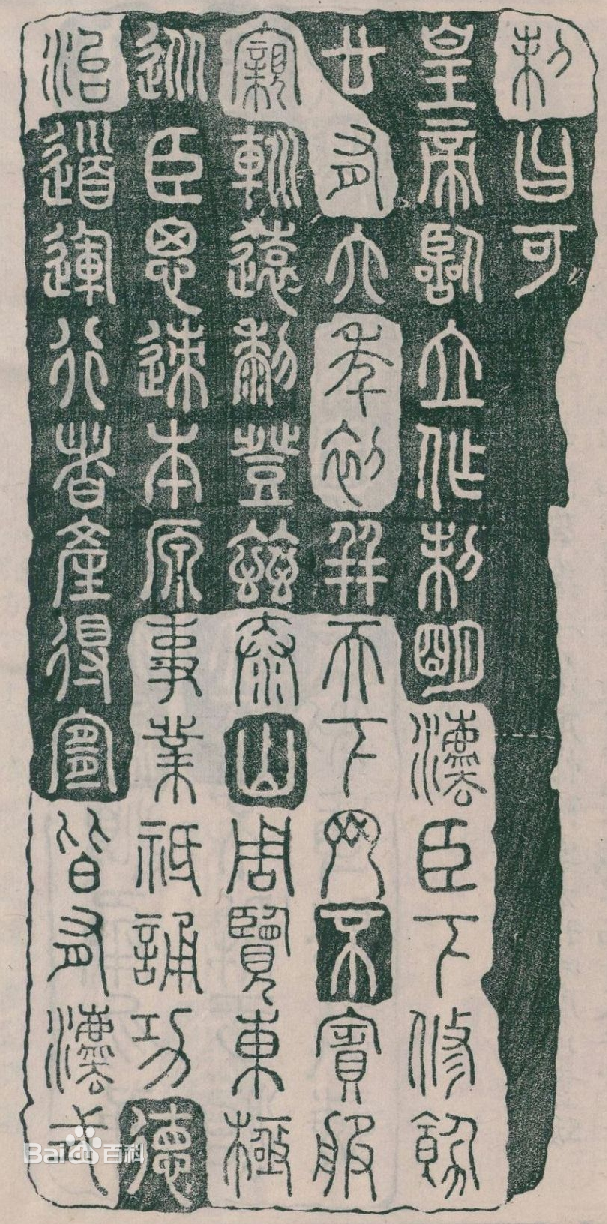 制曰可
皇帝臨立作制明灋臣下脩飭
廿有六年初并天下罔不賓服
寴巡遠黎登茲泰山周覽東極
從臣思迹本原事業祗誦功德
治道運行者產得宜皆有灋式
Baidu百科